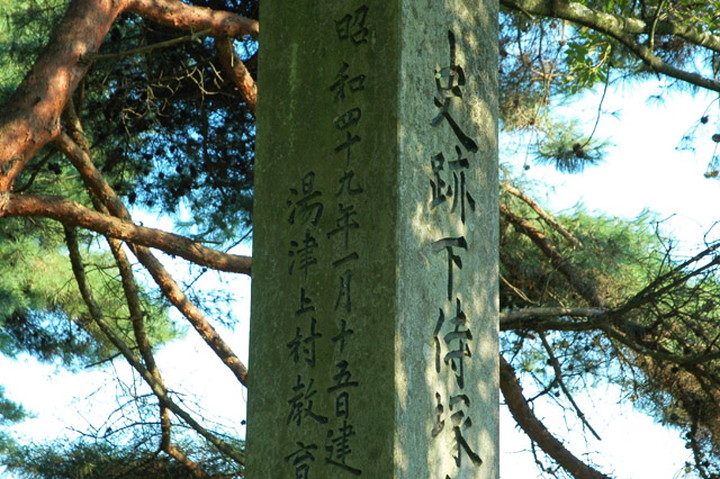 史跡下侍塚
昭和四十九年一月十五日建
湯津上村教育